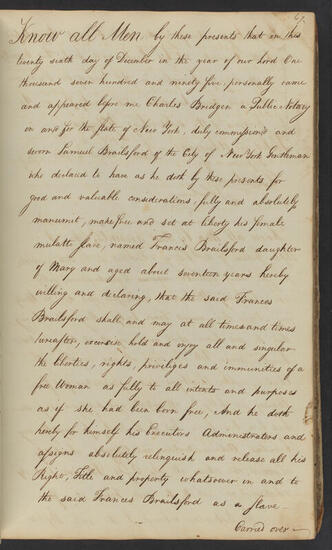 67.
Know all Men by these presents that on this
twenty sixth day of December in the year of our Lord One
thousand seven hundred and ninety five, personally came
and appeared before me Charles Bridgen a Public Notary
in and for the State of New York, duly commissioned and
sworn Samuel Brailsford of the City of New York Gentleman
who declared to have as he doth by these presents for
good and valuable considerations, fully and absolutely
manumit, make free and set at liberty his female
mulatto slave, named Frances Brailsford daughter
of Mary and aged about seventeen years hereby
willing and declaring, that the said Frances
Brailsford shall and may at all times and times
hereafter, exercise hold and enjoy all and singular
the liberties, rights, priviliges and immunities of a
free Woman as fully to all intents and purposes
as if she had been born free, And he doth
hereby for himself his Executors Administrators and
assigns absolutely relinquish and release all his
Right, Title and property whatsoever in and to
the said Frances Brailsford as a Slave
Carried over